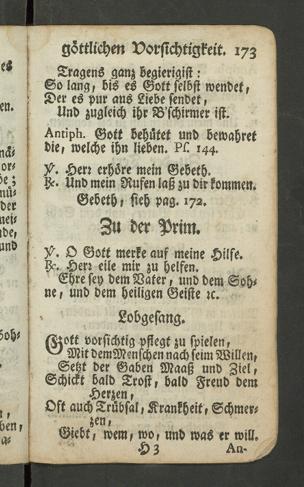 göttlichen Vorsichtigkeit. 173
Tragens ganz begierig ist:
So lang, bis es Gott selbst wendet,
Der es pur aus Liebe sendet,
Und zugleich ihr B'schirmer ist.
Antiph. Gott behütet und bewahret
die, welche ihn lieben. Ps. 144.
℣. Herr erhöre mein Gebeth.
℟. Und mein Rufen laß zu dir kommen.
Gebeth, sieh pag. 172.
Zu der Prim.
℣. O Gott merke auf meine Hilfe.
℟. Herr eile mir zu helfen.
Ehre sey dem Vater, und dem Soh-
ne, und dem heiligen Geiste ꝛc.
Lobgesang.
Gott vorsichtig pflegt zu spielen,
Mit dem Menschen nach seim Willen,
Setzt der Gaben Maaß und Ziel,
Schickt bald Trost, bald Freud dem
Herzen,
Oft auch Trübsal, Krankheit, Schmer-
zen,
Giebt, wem, wo, und was er will.
H 3 An-